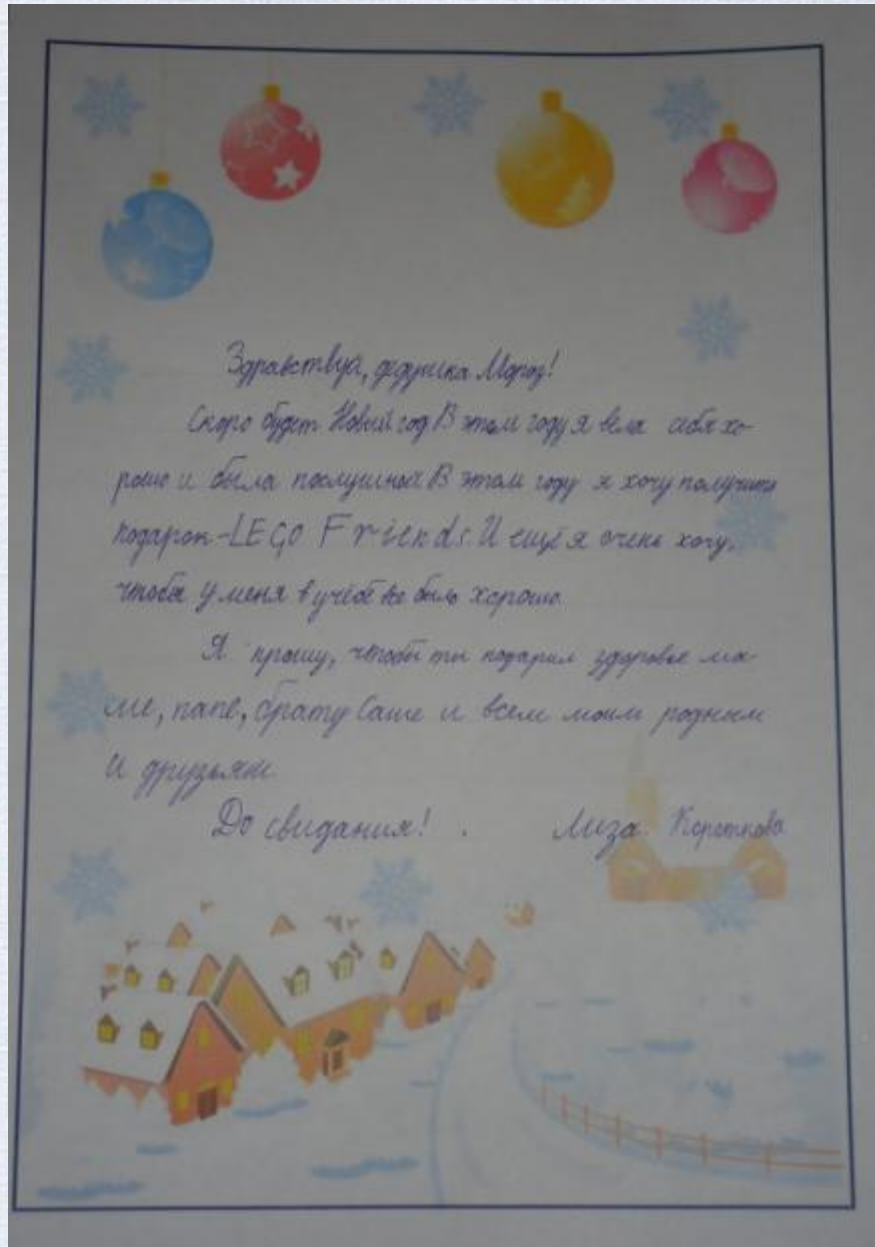 Здравствуй, дедушка Мороз!
Скоро будет Новый год В этом году я вела себя хо-
рошо и была послушной В этом году я хочу получить
подарок-LEGO Friends. И ещё я очень хочу,
чтобы у меня в учёбе все было хорошо.
Я прошу, чтобы ты подарил здоровье ма-
ме, папе, брату Саше и всем моим родным
и друзьям.
До свидания! Лиза Короткова